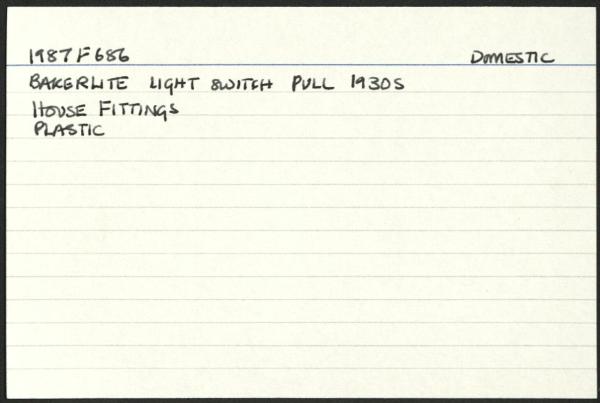 1987 F 686 DOMESTIC
BAKERLITE LIGHT SWITCH PULL 1930S
HOUSE FITTINGS
PLASTIC